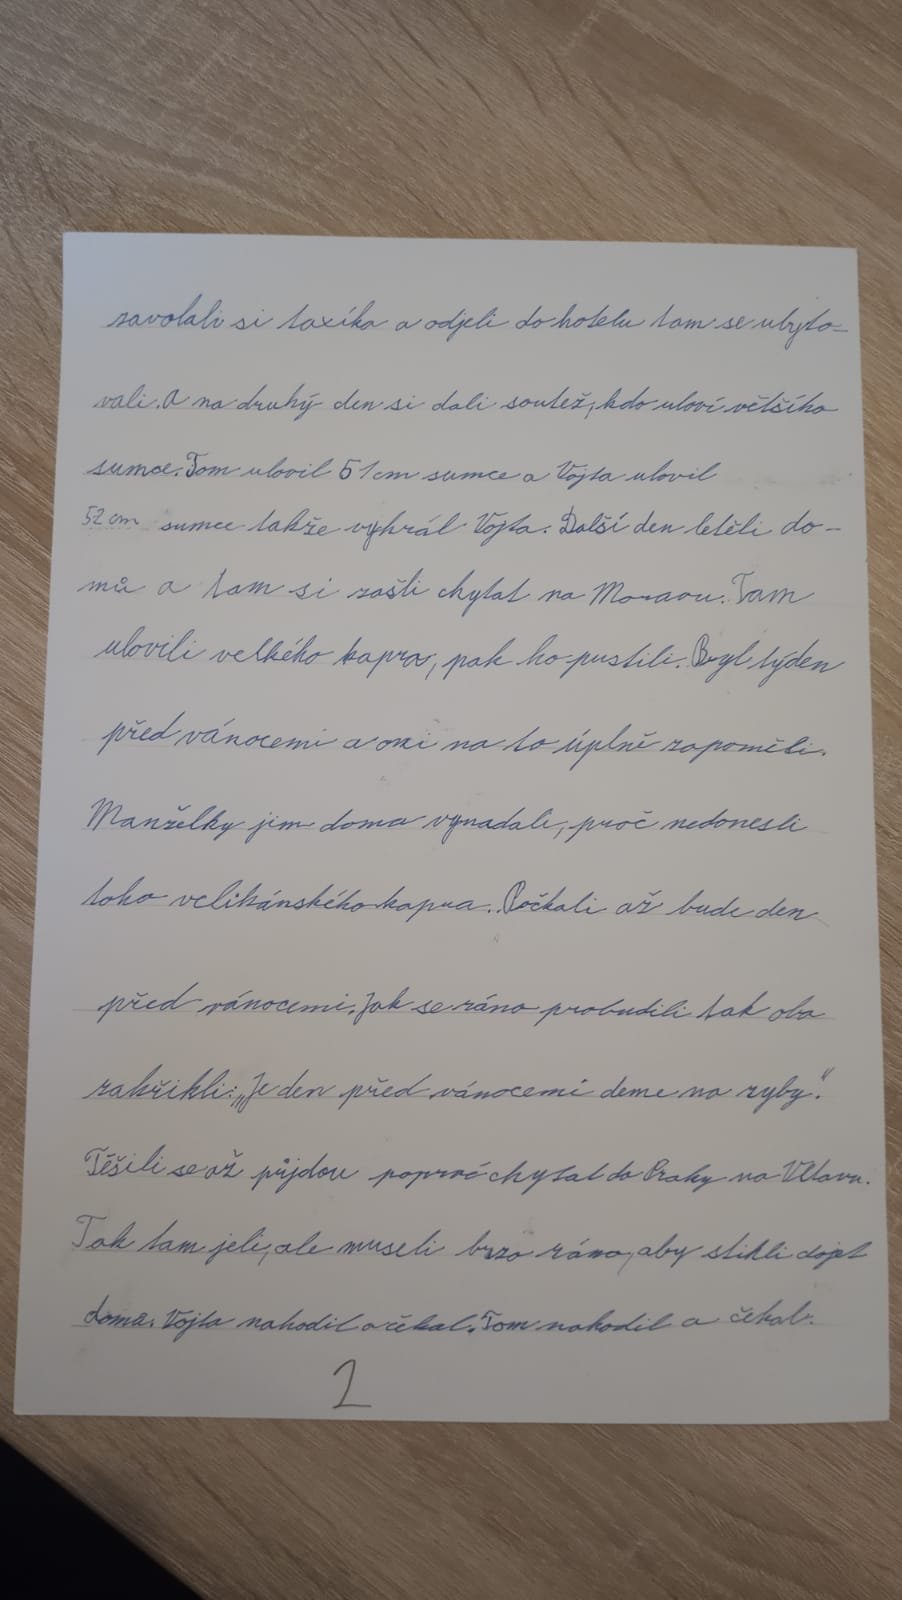 zavolali si taxíka a odjeli do hotelu tam se ubyto-
vali. A na druhý den si dali soutěž, kdo uloví většího
sumce. Tom ulovil 51cm sumce a Vojta ulovil
52 cm sumce takže vyhrál Vojta. Další den letěli do-
mů a tam si zašli chytat na Moravu. Tam
ulovili velkého kapra, pak ho pustili. Byl týden
před vánocemi a oni na to úplně zapoměli.
Manželky jim doma vynadali, proč nedonesli
toho velikánského kapra. Počkali až bude den
před vánocemi. Jak se ráno probudili tak oba
zakřikli: „Je den před vánocemi deme na ryby".
Těšili se až půjdou poprvé chytat do Prahy na Vltavu.
Tak tam jeli, ale museli brzo ráno, aby stihli dojet
domů. Vojta nahodil a čekal. Tom nahodil a čekal.
2